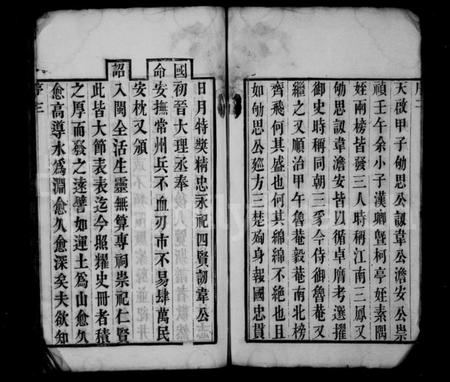 序二
天啟甲子劬思公訒韋公澹安公崇
禎壬午余小子漢卿曁柯亭姪素隅
姪兩榜皆發三人時稱江南三鳳又
劬思訒韋澹安皆以循卓膺考選擢
御史時稱同朝三豸今侍御魯菴又
繼之又順治甲午魯菴毅菴南北榜
齊飛何其盛也何其綿綿不絶也且
如劬思公廵方三楚殉身報國忠貫
日月特奬精忠永祀四賢訒韋公
國初晉大理丞奉
命安撫常州兵不血刃市不易肆萬民
安枕又頒
詔入閩全活生靈無算專祠崇祀仁賢
此皆大節表表迄今照耀史冊者積
之厚而發之遠譬如運土爲山愈久
愈高導水爲淵愈久愈深矣夫欲知
序三